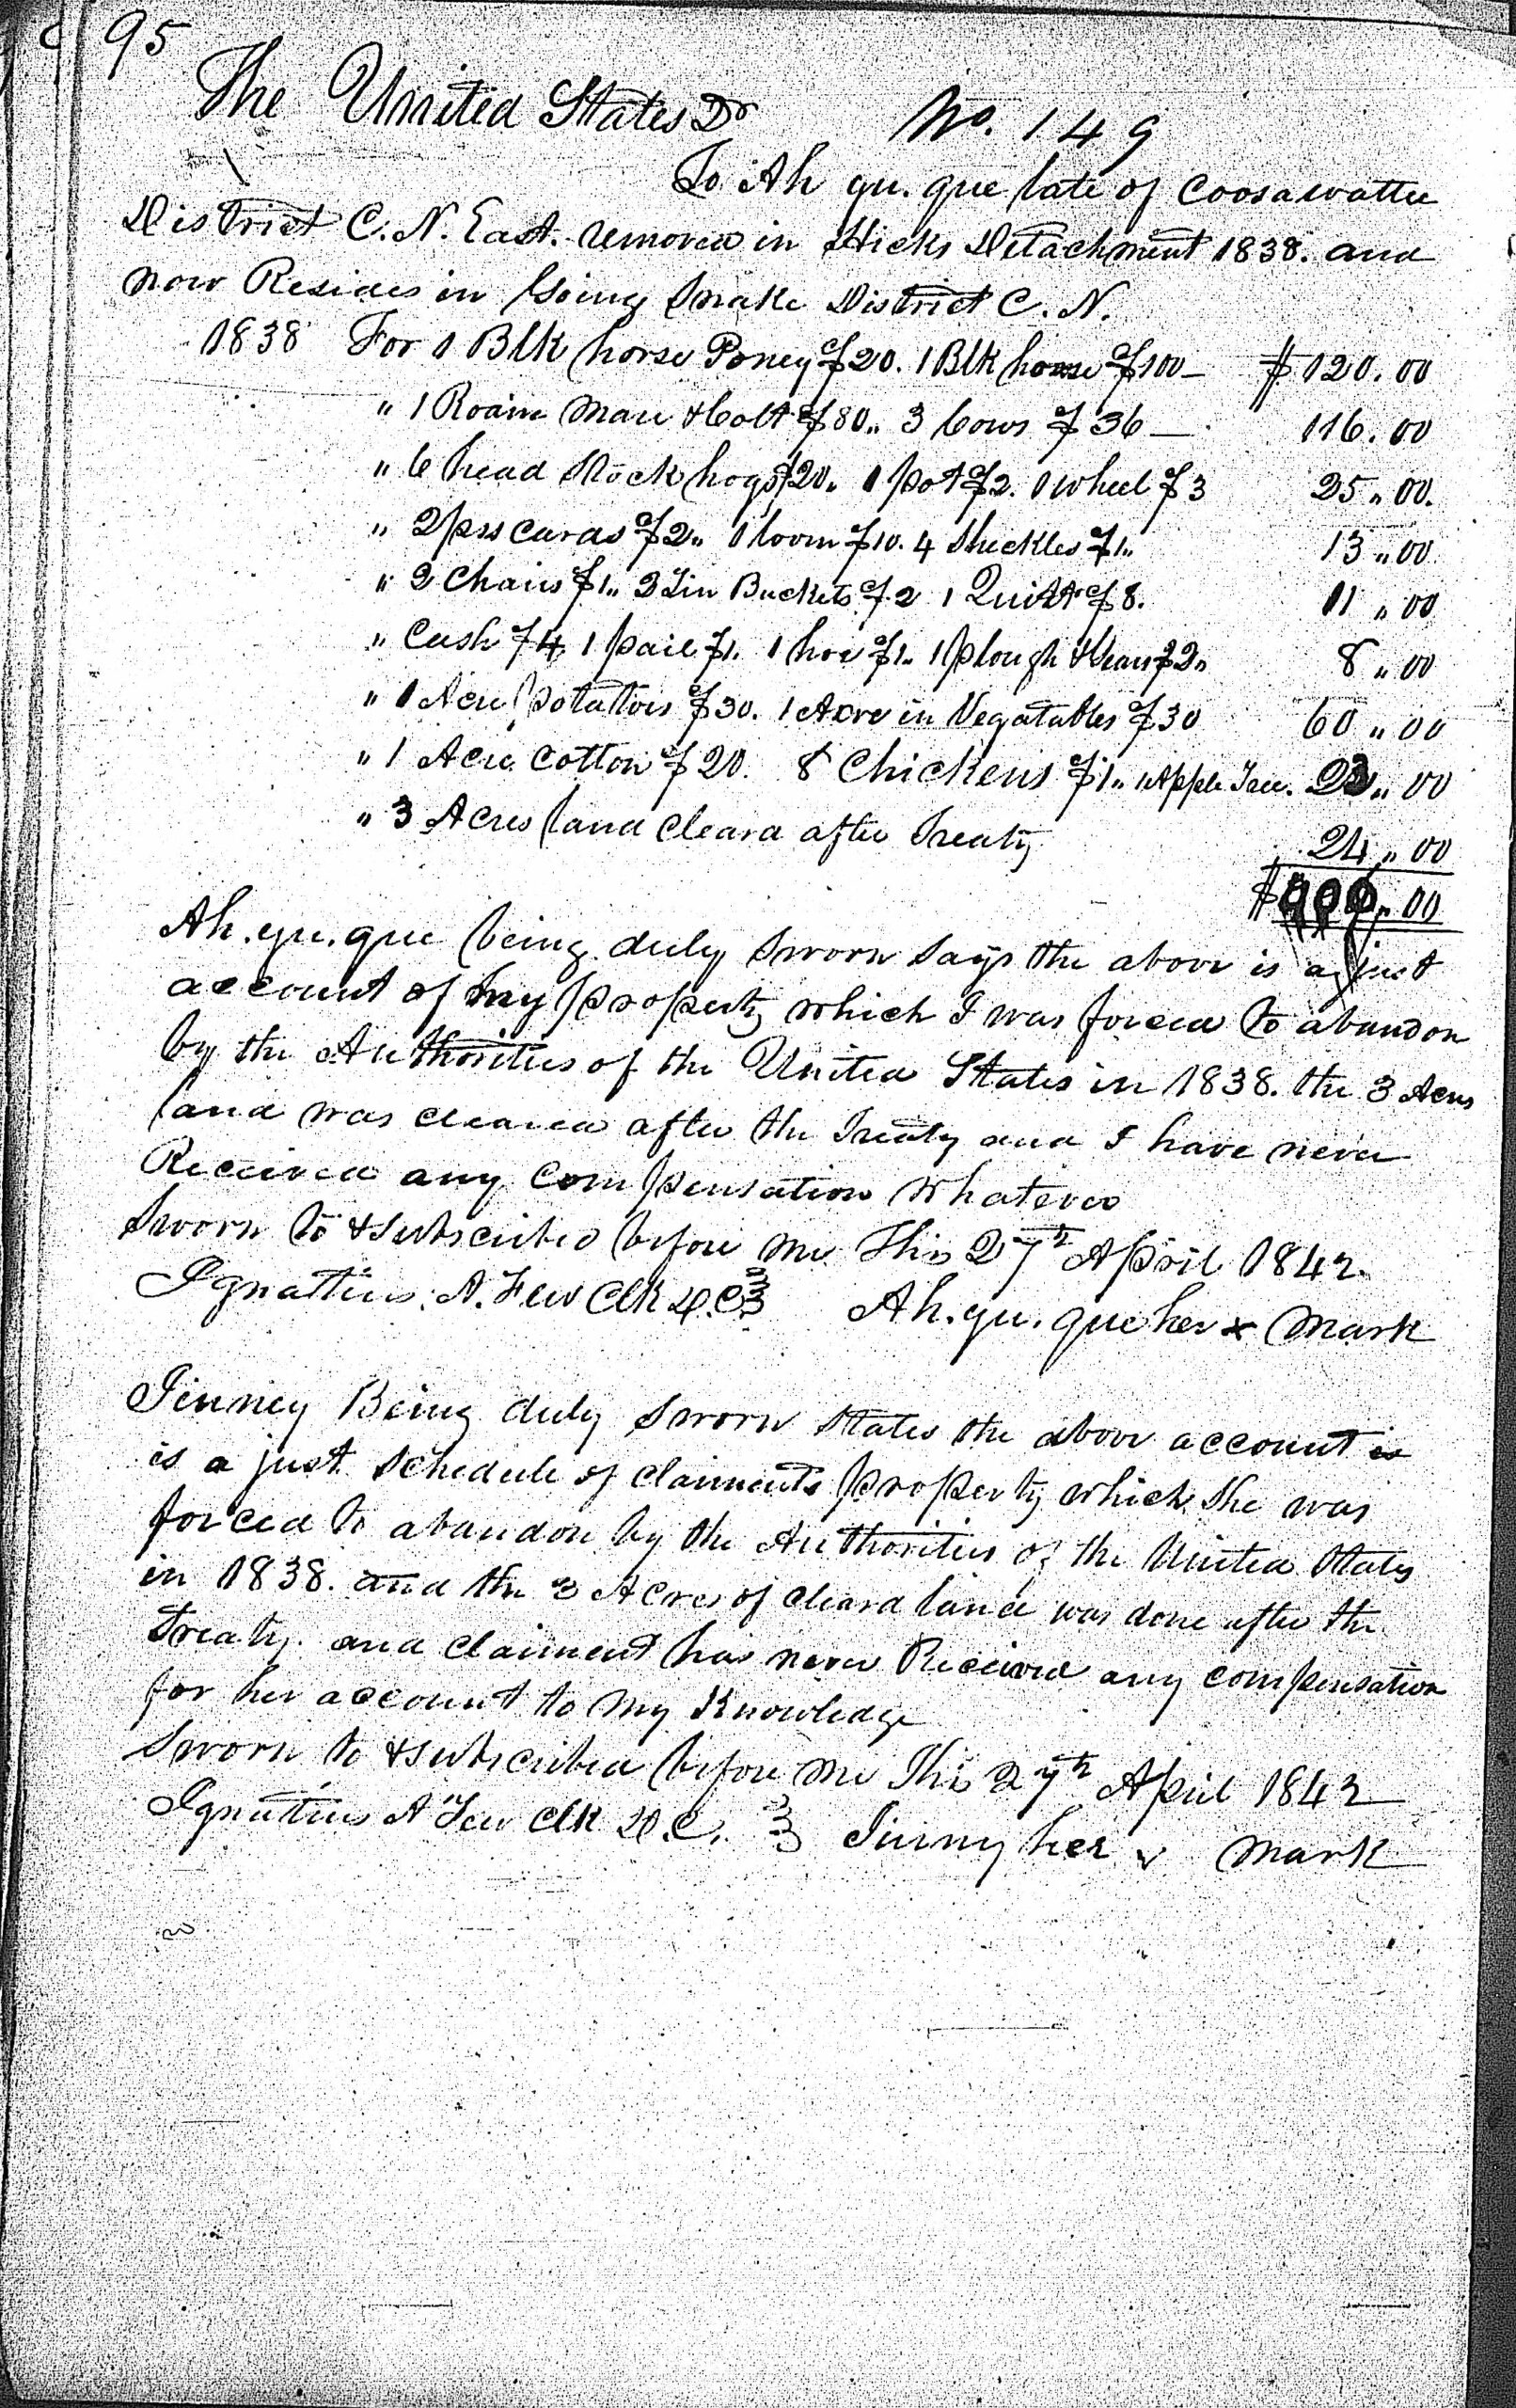 95
The United States Dr No. 149
To Ah yu. que late of Coosawattee
District C. N. East. removed in Hicks Detachment 1838. and
now Resides in Going Snake District C. N.
1838 For 1 Blk horse Poney $20. 1 Blk horse $100— $120.00
" 1 Roain Mare & Colt $80,, 3 Cows $36— 116.00
" 6 head Stock hogs $20,, 1 pot $2. 1 wheel $3 25,,00.
" 2 prs cards $2,, 1 loom $10. 4 Shickles $1,, 13,,00
" 2 Chairs $1,, 2 Tin Buckets $2 1 Quilt $8. 11,,00
" Cash $4 1 pail $1. 1 hoe $1,, 1 plough & Gears $2,, 8,,00
" 1 Acre potatoes $30. 1 Acre in Vegatables $30 60,,00
" 1 Acre Cotton $20. 8 Chickens $1,, 1 Apple Tree. 23,,00
" 3 Acres land Cleard after Treaty 24,,00
Ah. yu. que being duly Sworn Says the above is a just
account of my property which I was forced to abandon
by the Authorities of the United States in 1838. the 3 Acres
land was cleared after the Treaty and I have never
Received any Compensation Whatever
Sworn to & Subscribed before me This 27th April 1842.
Ignatius. A. Few Clk D.C. Ah. yu. que her x Mark
Jinney Being duly Sworn States the above account is
is a just Schedule of claiments property which She was
forced to abandon by the Authorities of the United States
in 1838. and the 3 Acres of cleard land was done after the
Treaty. and Claiment has never Received any compensation
for her account to my Knowledge
Sworn to & Subscribed before me This 27th April 1842
Ignatius A Few Clk D.C. Jinny her x Mark